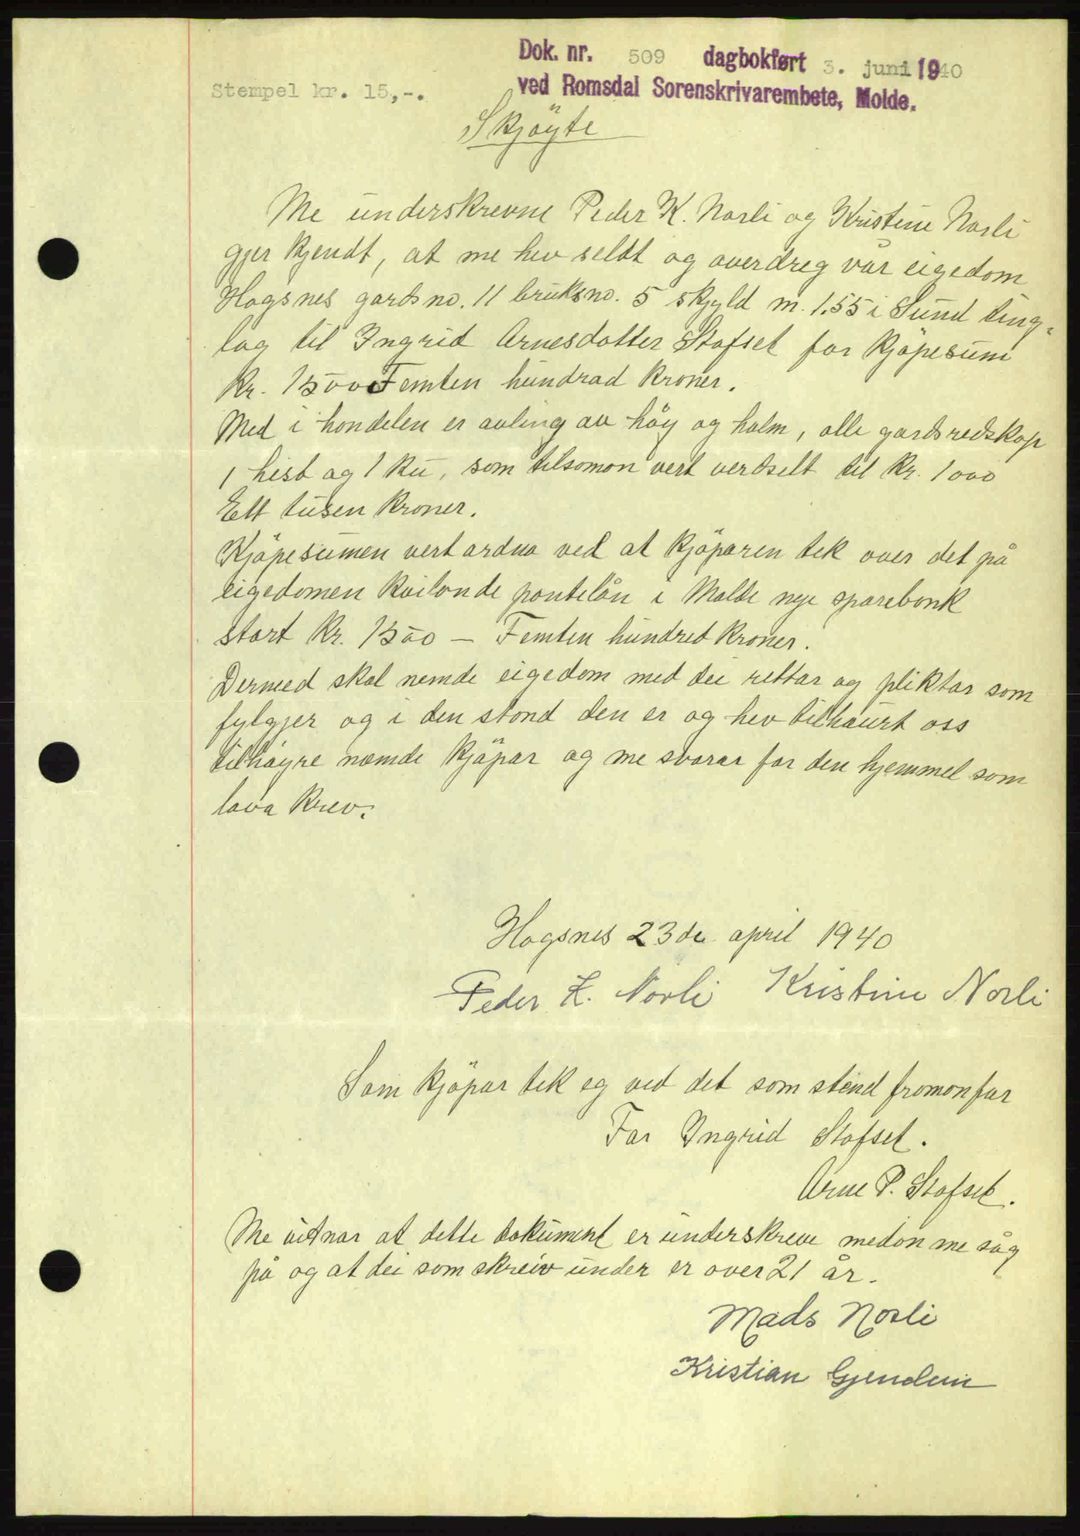 Dok. nr. 509 dagbokført 3. juni 1940
Stempel kr. 15,-. ved Romsdal Sorenskrivarembete, Molde.
Skjöyte
Me underskrevne Peder K. Norli og Kristine Norli
gjer kjendt, at me hev seldt og overdreg vår eigedom
Hogsnes gardsno. 11 bruksno. 5 skyld m. 1.55 i Sund ting-
lag til Ingrid Arnesdotter Stafset for kjöpesum
Kr. 1500 Femten hundrad kroner.
Med i hondelen er avling av höy og halm, alle gardsredskap
1 hest og 1 ku, som tilsamon vert verdsett til kr. 1000
Ett tusen kroner.
Kjöpesumen vert ordna ved at kjöparen tek over det på
eigedomen kvilande pantelån i Molde nye sparebank
stort kr. 1500 – Femten hundred kroner.
Dermed skal nemde eigedom med dei rettar og pliktar som
fylgjer og i den stond den er og hev tilhöurt oss
tilhöyre nemde kjöpar og me svarar for den hjemmel som
lova krev.
Hogsnes 23de april 1940
Peder K. Norli Kristine Norli
Som kjöpar tek eg ved det som stend framonfor
For Ingrid Stafset.
Arne P. Stafset.
Me vitnar at dette dokument er underskreve medan me såg
på og at dei som skreiv under er over 21 år.
Mads Norli
Kristian Gjendem